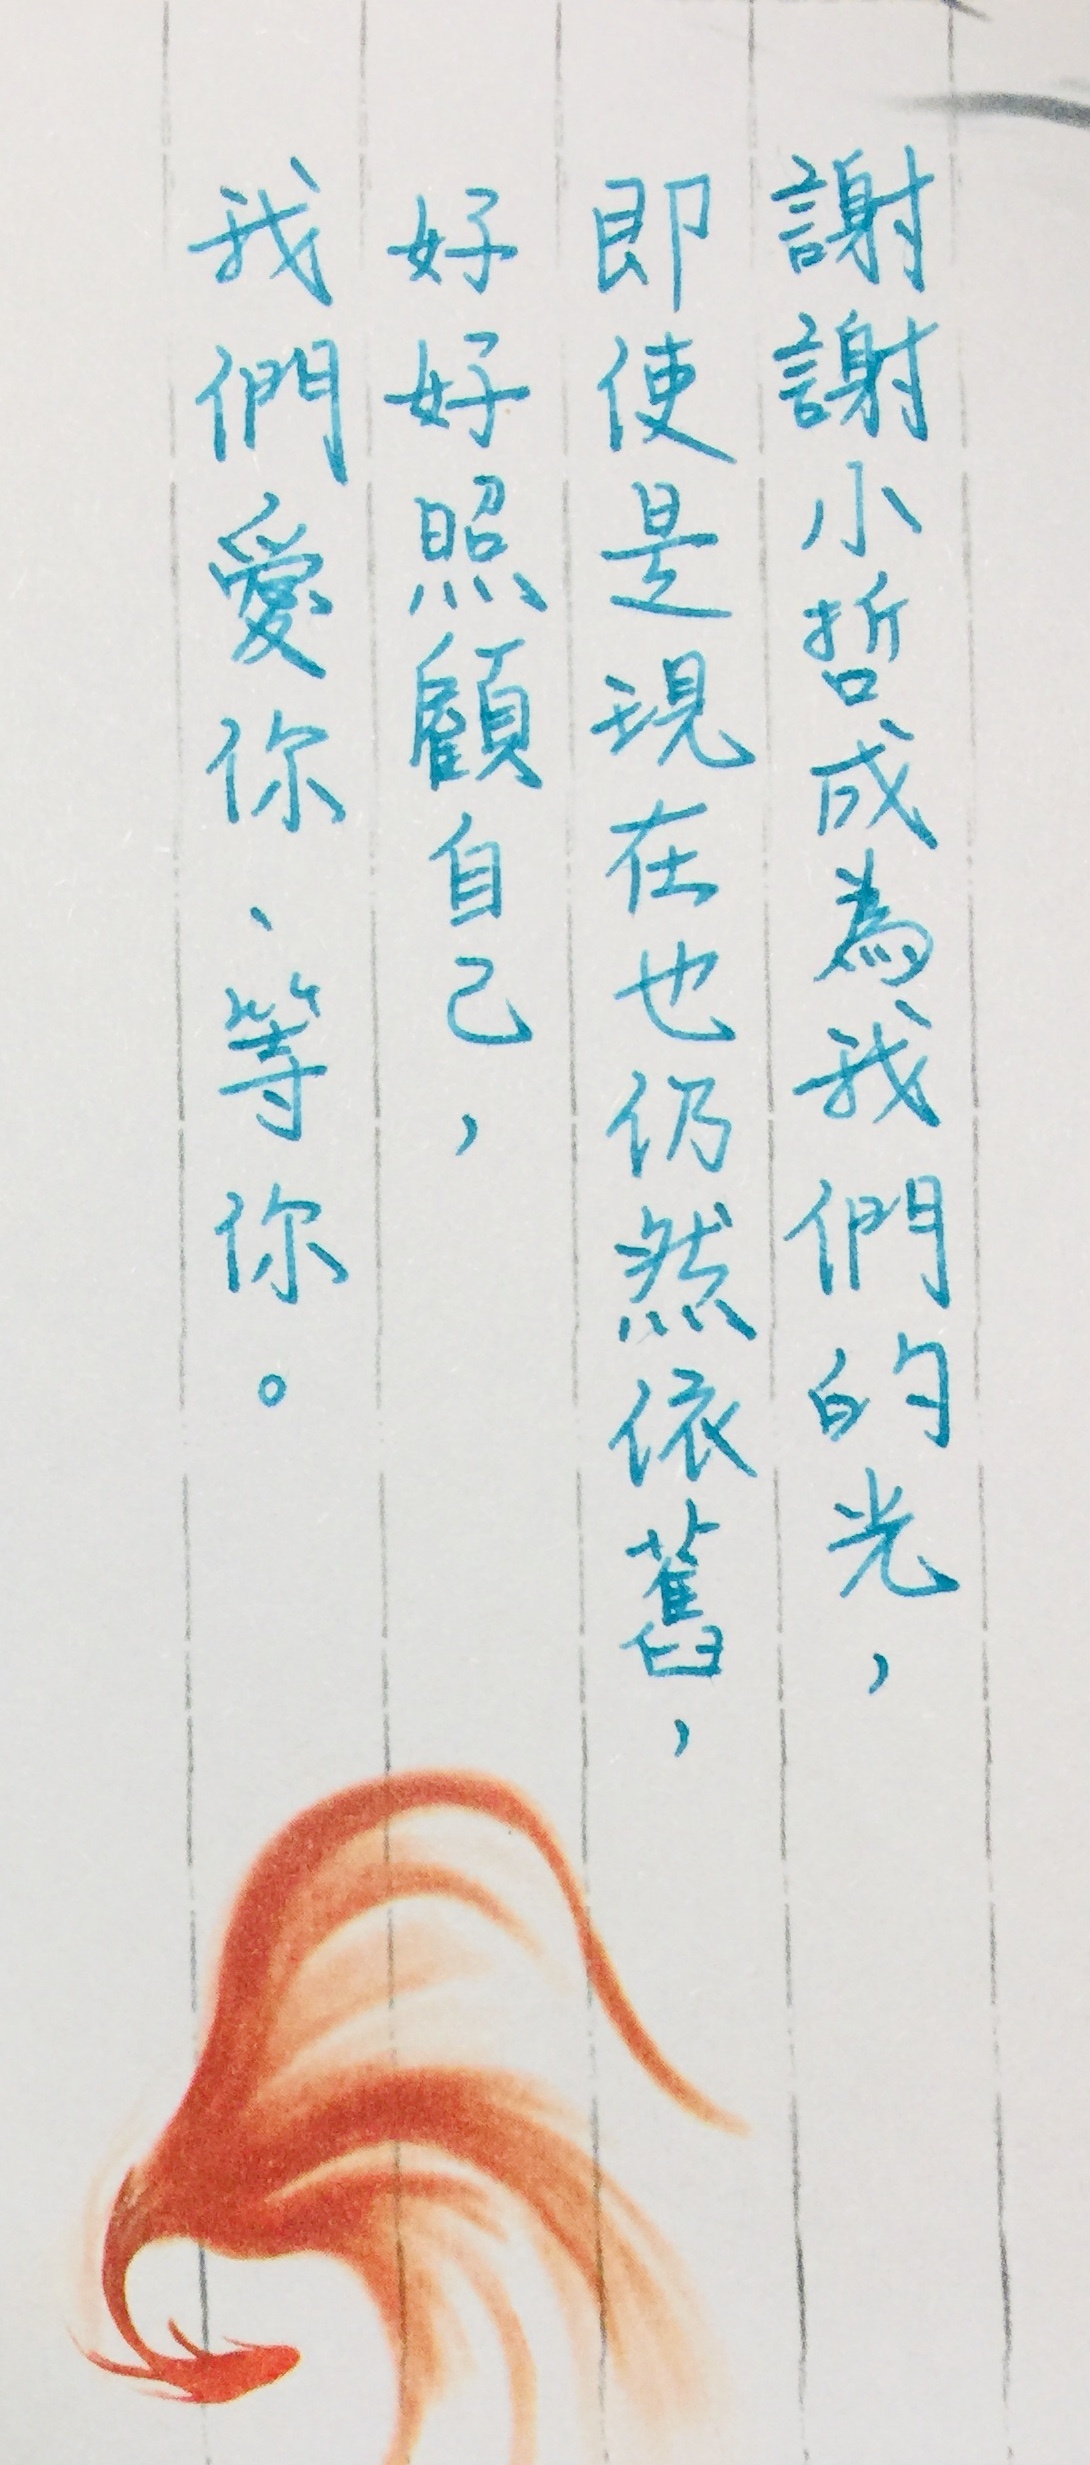 謝謝小哲成為我們的光，
即使是現在也仍然依舊，
好好照顧自己，
我們愛你、等你。